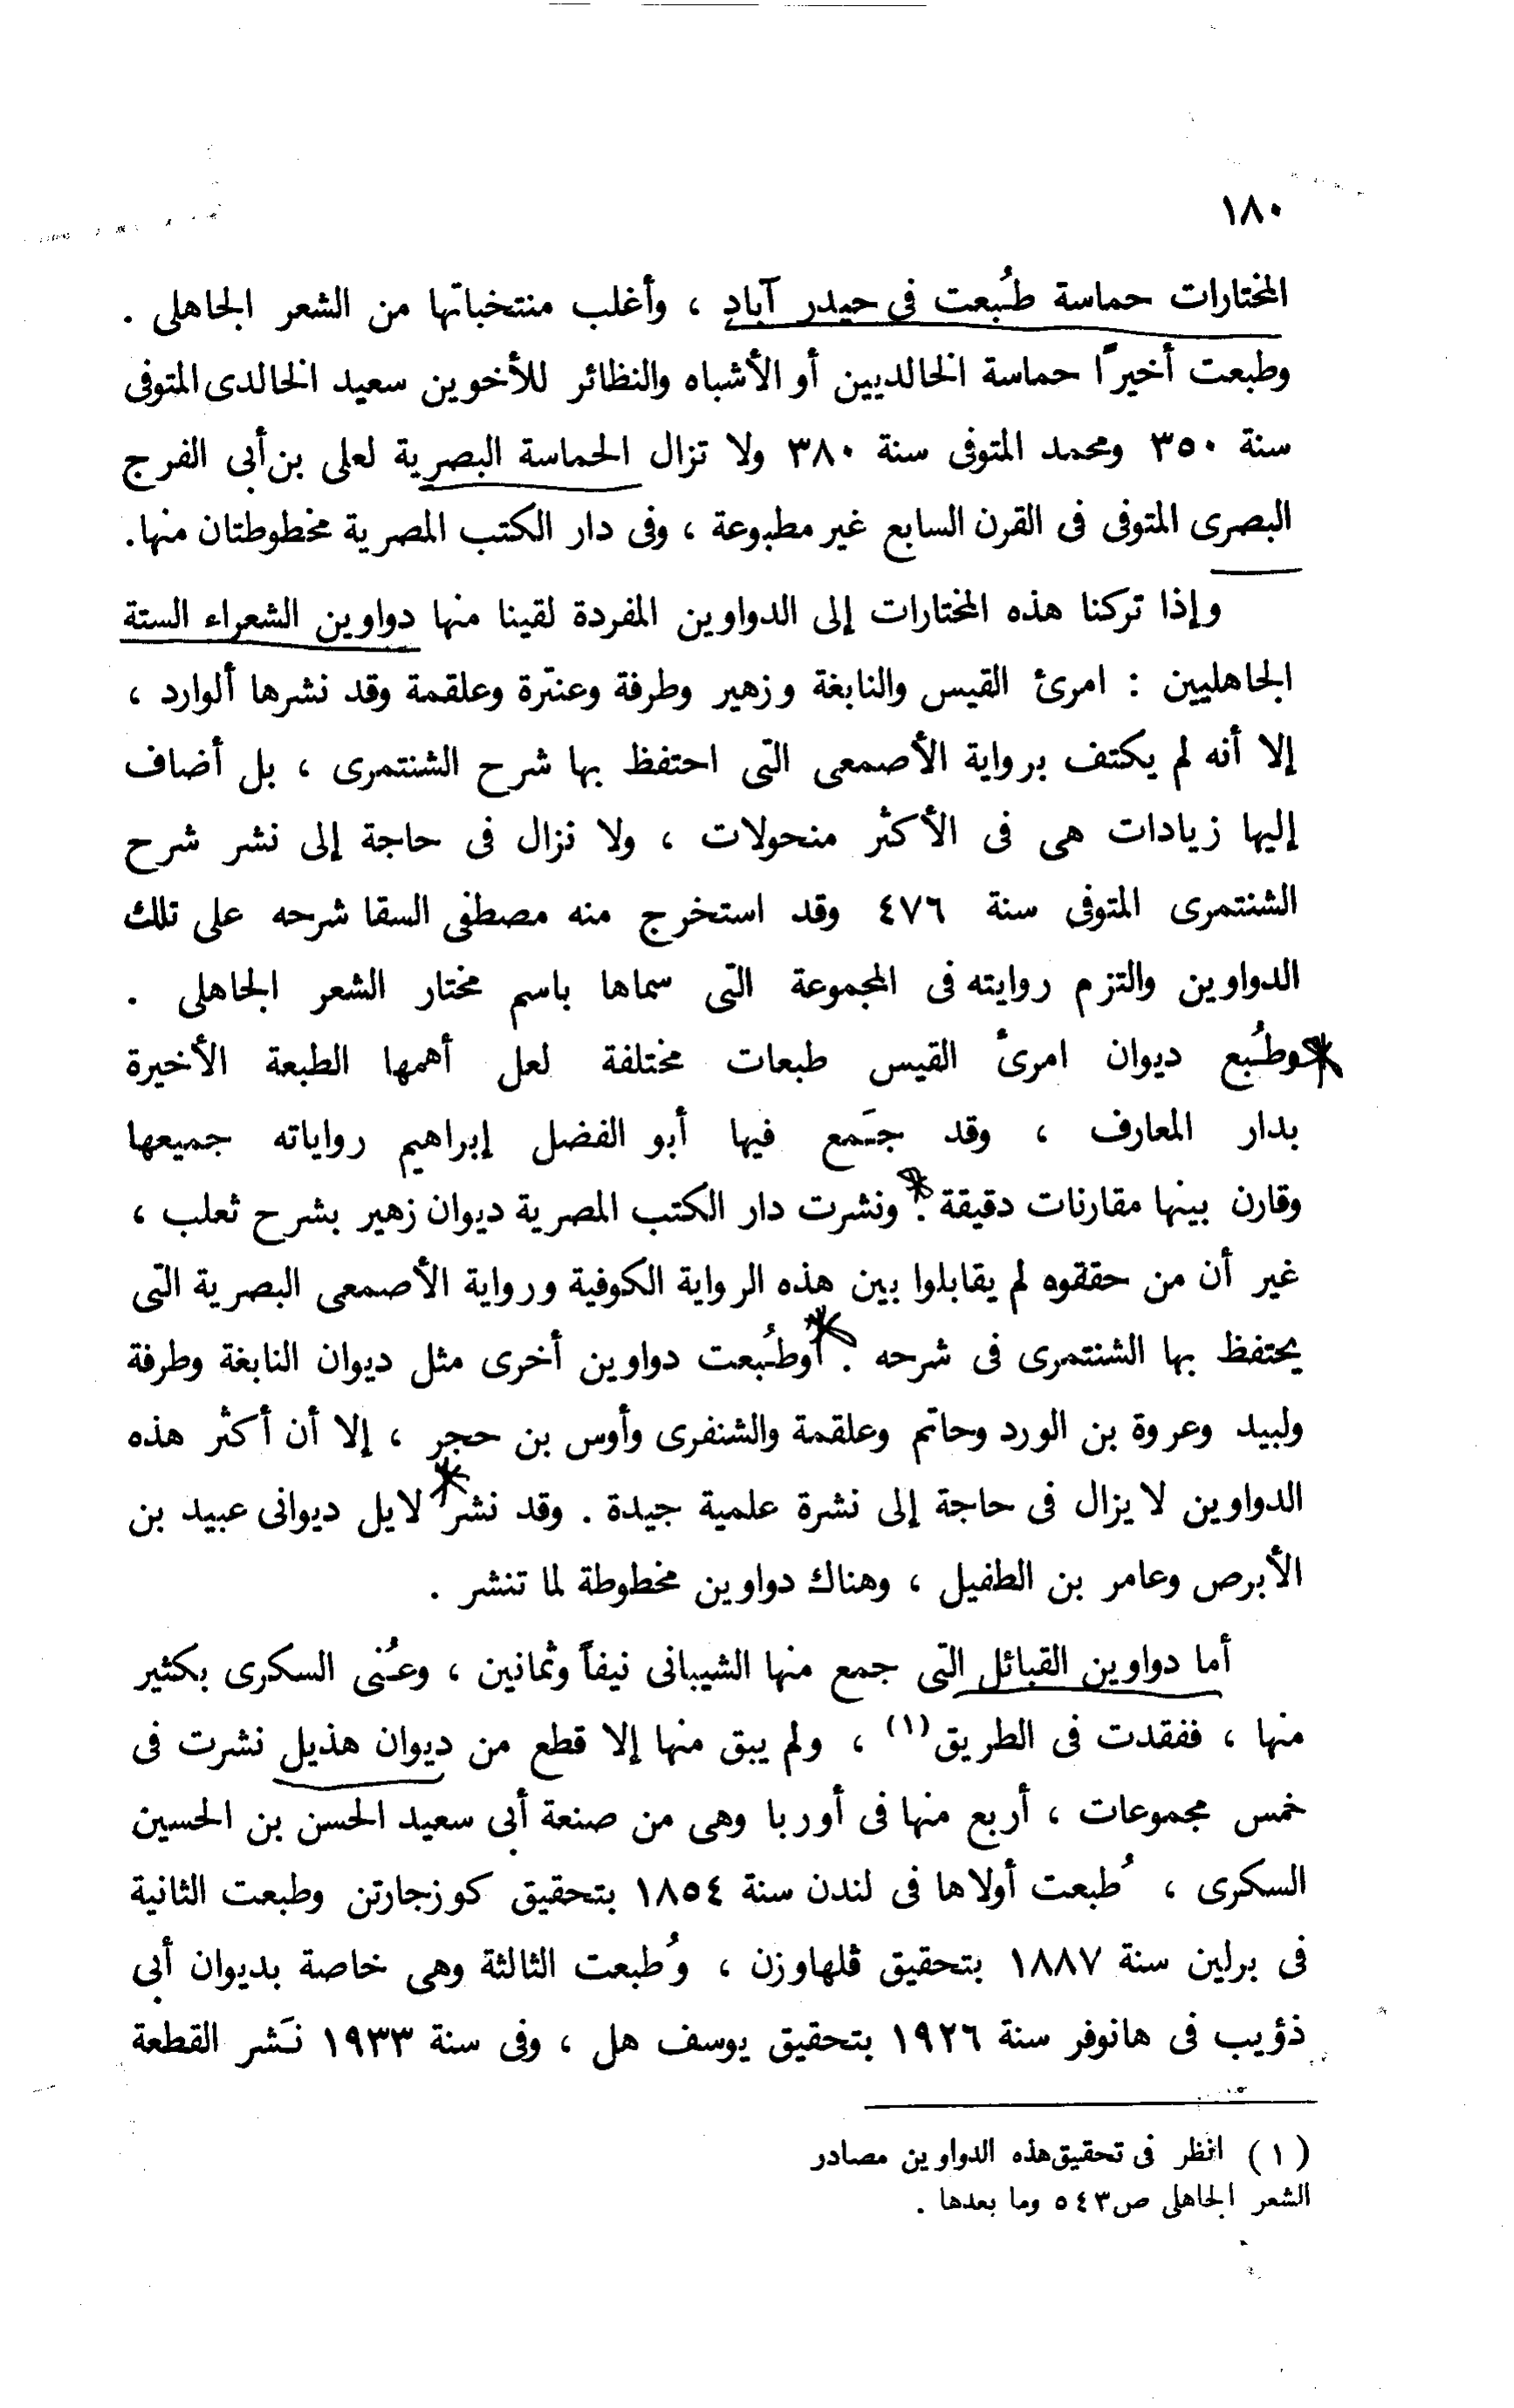 ١٨٠
المختارات حماسة طُبعت فى حيدر آباد ، وأغلب منتخباتها من الشعر الجاهلى .
وطبعت أخيرًا حماسة الخالديين أو الأشباه والنظائر للأخوين سعيد الخالدى المتوفى
سنة ٣٥٠ ومحمد المتوفى سنة ٣٨٠ ولا تزال الحماسة البصرية لعلى بن أبى الفرج
البصرى المتوفى فى القرن السابع غير مطبوعة ، وفى دار الكتب المصرية مخطوطتان منها.
وإذا تركنا هذه المختارات إلى الدواوين المفردة لقينا منها دواوين الشعراء الستة
الجاهليين : امرئ القيس والنابغة وزهير وطرفة وعنترة وعلقمة وقد نشرها ألوارد ،
إلا أنه لم يكتف برواية الأصمعى التى احتفظ بها شرح الشنتمرى ، بل أضاف
إليها زيادات هى فى الأكثر منحولات ، ولا نزال فى حاجة إلى نشر شرح
الشنتمرى المتوفى سنة ٤٧٦ وقد استخرج منه مصطفى السقا شرحه على تلك
الدواوين والتزم روايته فى المجموعة التى سماها باسم مختار الشعر الجاهلى .
وطُبع ديوان امرئ القيس طبعات مختلفة لعل أهمها الطبعة الأخيرة
بدار المعارف ، وقد جَمع فيها أبو الفضل إبراهيم رواياته جميعها
وقارن بينها مقارنات دقيقة . ونشرت دار الكتب المصرية ديوان زهير بشرح ثعلب ،
غير أن من حققوه لم يقابلوا بين هذه الرواية الكوفية ورواية الأصمعى البصرية التى
يحتفظ بها الشنتمرى فى شرحه . وطُبعت دواوين أخرى مثل ديوان النابغة وطرفة
ولبيد وعروة بن الورد وحاتم وعلقمة والشنفرى وأوس بن حجر ، إلا أن أكثر هذه
الدواوين لا يزال فى حاجة إلى نشرة علمية جيدة . وقد نشر لايل ديوانى عبيد بن
الأبرص وعامر بن الطفيل ، وهناك دواوين مخطوطة لما تنشر .
أما دواوين القبائل التى جمع منها الشيبانى نيفاً وثمانين ، وعُنى السكرى بكثير
منها ، ففقدت فى الطريق (١) ، ولم يبق منها إلا قطع من ديوان هذيل نشرت فى
خمس مجموعات ، أربع منها فى أوربا وهى من صنعة أبى سعيد الحسن بن الحسين
السكرى ، طُبعت أولاها فى لندن سنة ١٨٥٤ بتحقيق كوزجارتن وطبعت الثانية
فى برلين سنة ١٨٨٧ بتحقيق ڤلهاوزن ، وطُبعت الثالثة وهى خاصة بديوان أبى
ذؤيب فى هانوفر سنة ١٩٢٦ بتحقيق يوسف هل ، وفى سنة ١٩٣٣ نَشر القطعة
(١) انظر فى تحقيق هذه الدواوين مصادر
الشعر الجاهلى ص ٥٤٣ وما بعدها .